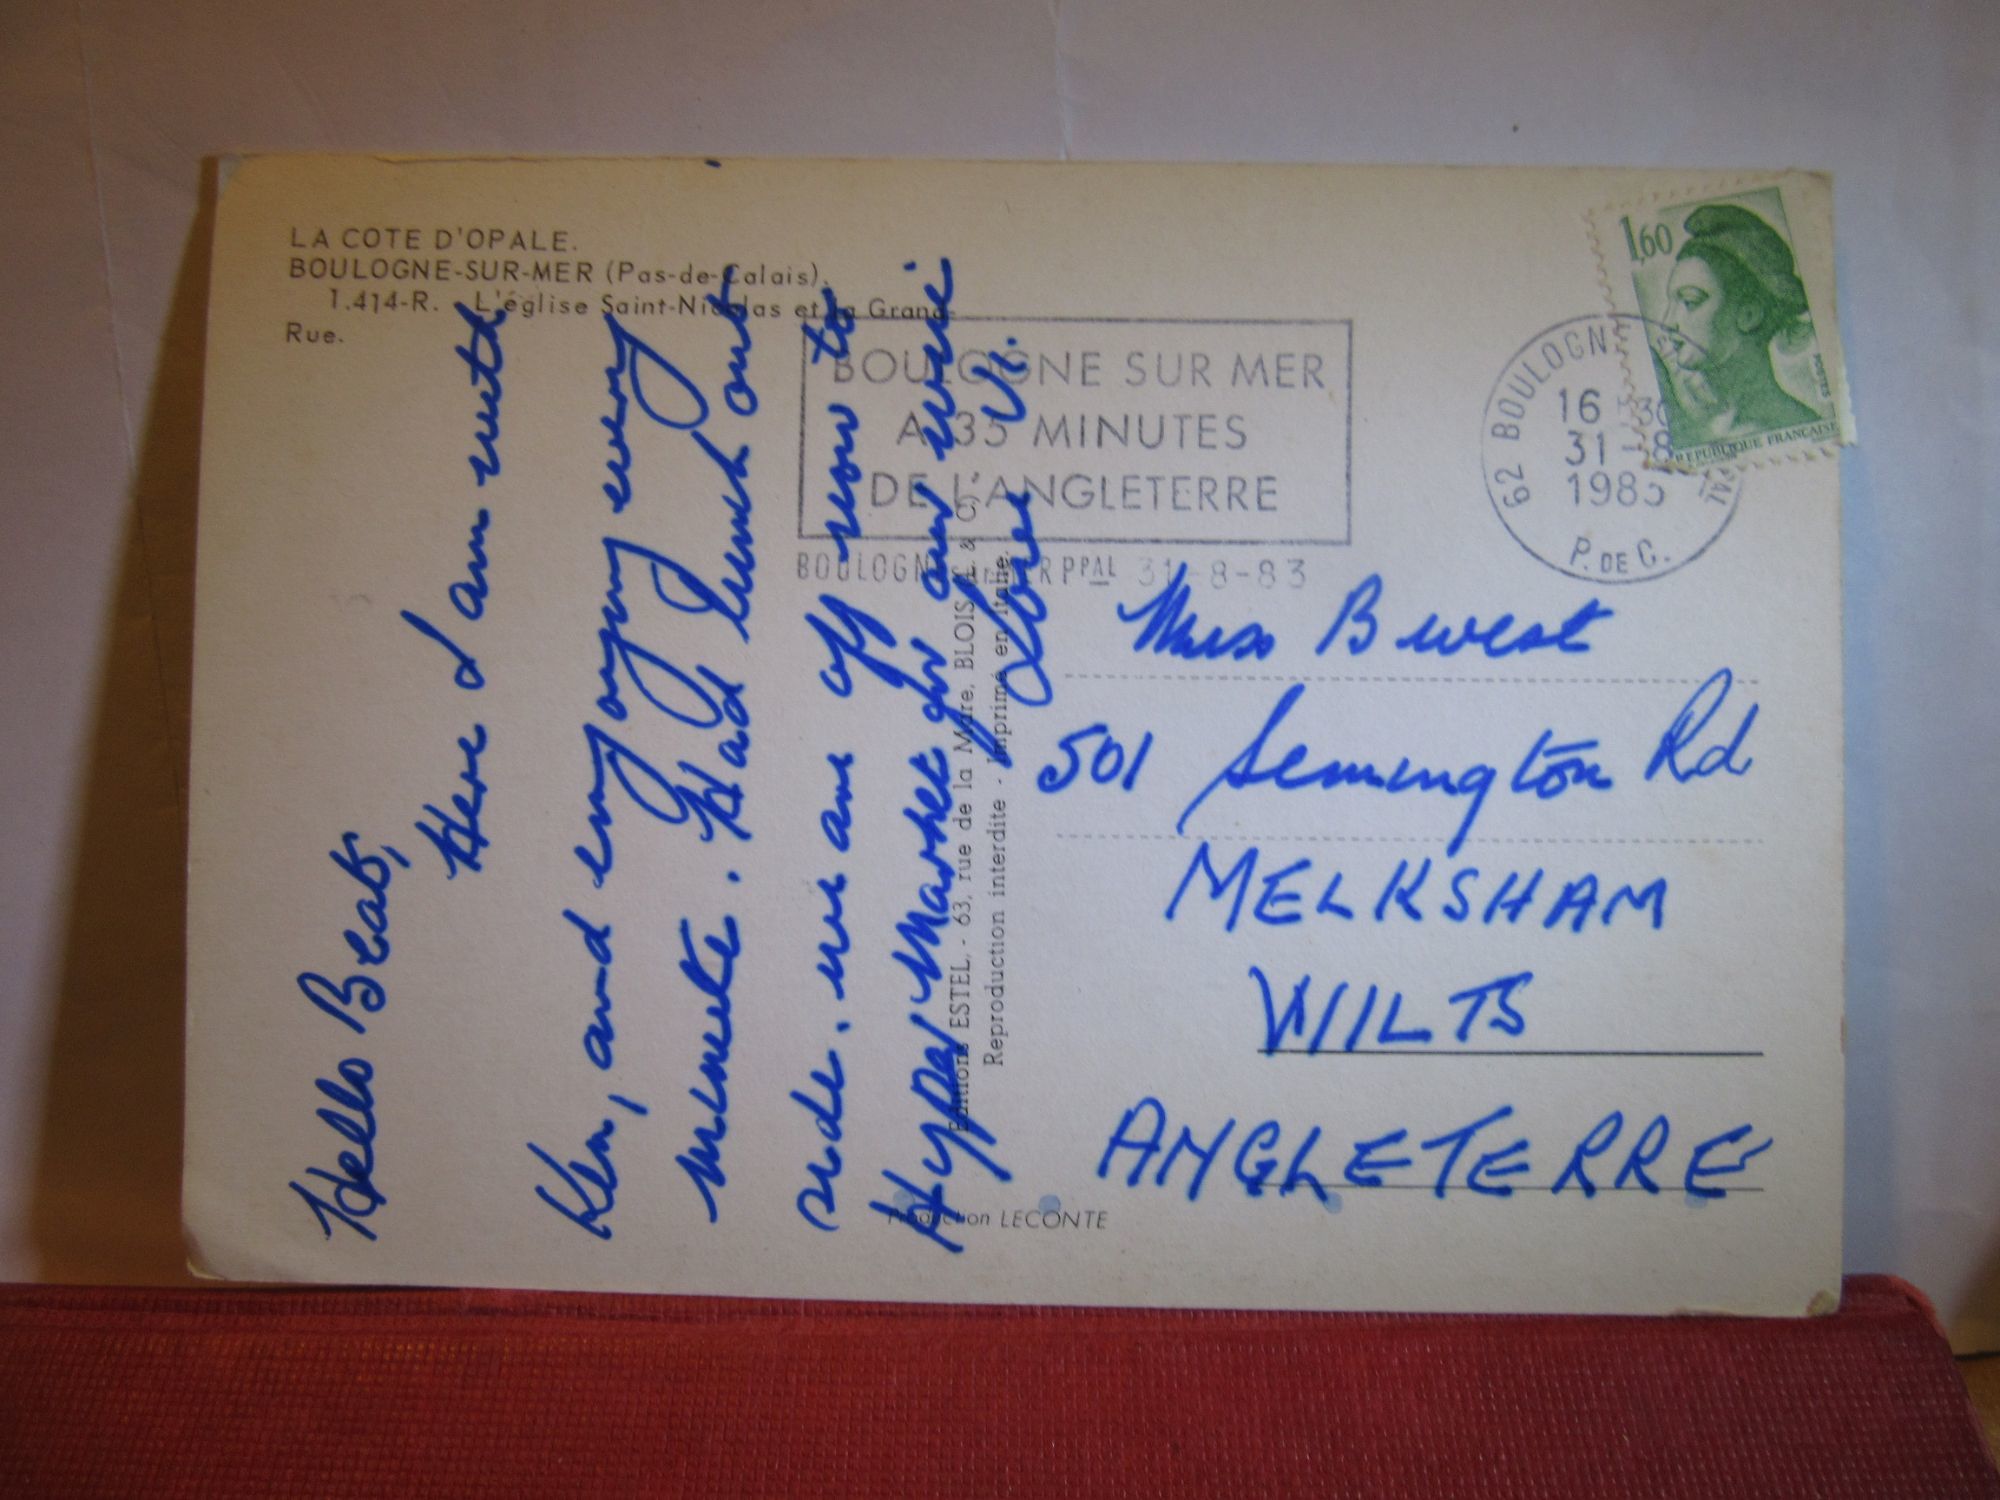 LA COTE D'OPALE.
BOULOGNE-SUR-MER (Pas-de-Calais).
1.414-R. L'église Saint-Nicolas et la Grand-
Rue.
Hello Beat,
Here I am with
Ken, and enjoying every
minute. Had lunch out
side. we are off now to
Hyper Market for our wine
Love Vi.
Editions ESTEL, - 63, rue de la Mare, BLOIS (L. & C.) -
Reproduction interdite - Imprimé en Italie.
Production LECONTE
BOULOGNE SUR MER
A 35 MINUTES
DE L'ANGLETERRE
BOULOGNE PPAL 31-8-83
1,60
POSTES
REPUBLIQUE FRANCAISE
62 BOULOGNE PAL
16 30
31 -8
1983
P. DE C.
Miss B West
501 Semington Rd
MELKSHAM
WILTS
ANGLETERRE